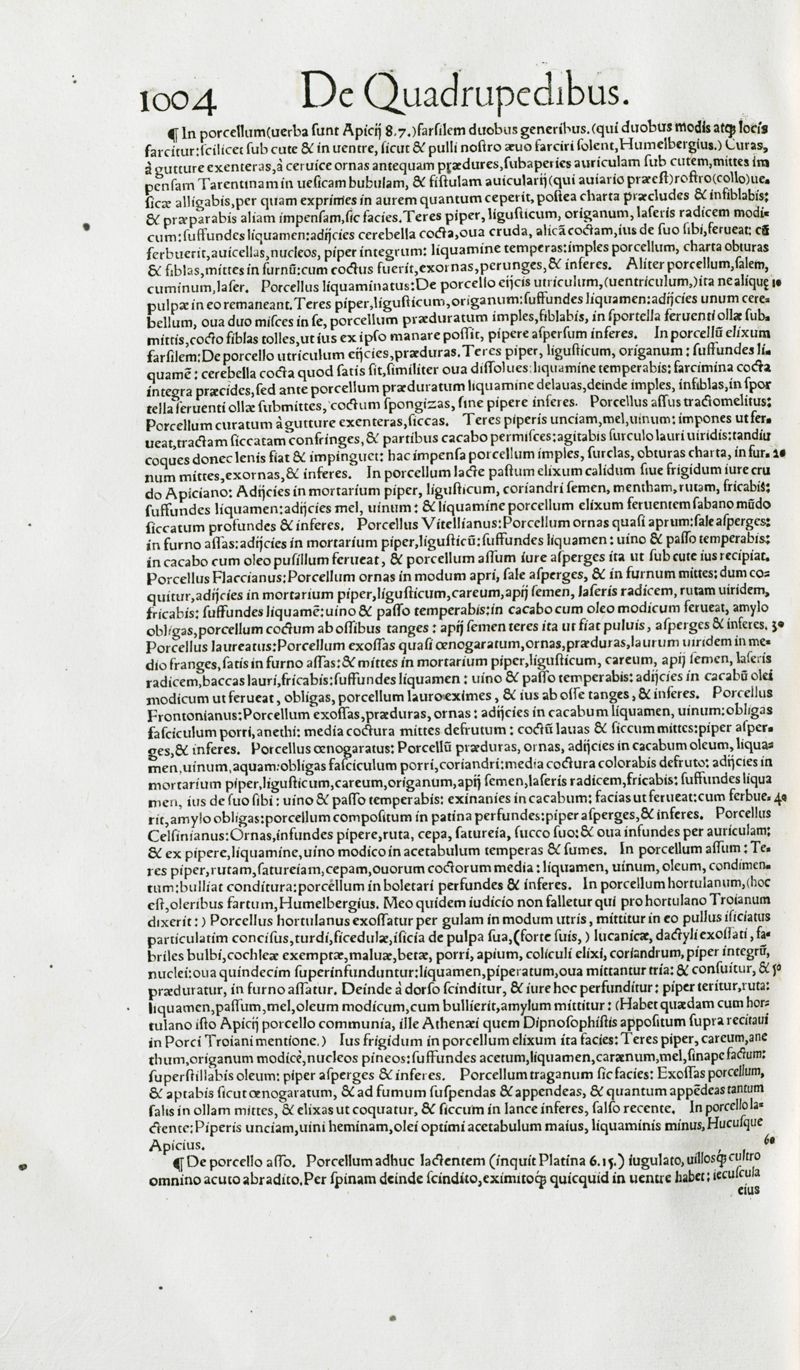 1004 De Quadrupedibus.
¶ In porcellum (uerba sunt Apicij 8.7.) farsilem duobus generibus. (qui duobus modis atq; locis
farcitur: scilicet sub cute & in uentre, sicut & pulli nostro æuo farciri solent, Humelbergius.) Curas,
à gutture exenteras, à ceruice ornas antequam prædures, subaperies auriculam sub cutem, mittes im
pensam Tarentinam in uesicam bubulam, & fistulam auicularij (qui auiario præest) rostro (collo) ue-
sicæ alligabis, per quam exprimes in aurem quantum ceperit, postea charta præcludes & infiblabis:
& præparabis aliam impensam, sic facies. Teres piper, ligusticum, origanum, laseris radicem modi-
cum: suffundes liquamen: adijcies cerebella cocta, oua cruda, alicā coctam, ius de suo sibi, ferueat: cū
ferbuerit, auicellas, nucleos, piper integrum: liquamine temperas: imples porcellum, charta obturas
& fiblas, mittes in furnū: cum coctus fuerit, exornas, perunges, & inferes. Aliter porcellum, salem,
cuminum, laser. Porcellus liquaminatus: De porcello eijcis utriculum, (uentriculum,) ita ne aliquę 10
pulpæ in eo remaneant. Teres piper, ligusticum, origanum: suffundes liquamen: adijcies unum cere-
bellum, oua duo misces in se, porcellum præduratum imples, fiblabis, in sportella feruenti ollæ sub-
mittis, cocto fiblas tolles, ut ius ex ipso manare possit, pipere aspersum inferes. In porcellū elixum
farsilem: De porcello utriculum eijcies, præduras. Teres piper, ligusticum, origanum: suffundes li-
quamē: cerebella cocta quod satis sit, similiter oua dissolues: liquamine temperabis: farcimina cocta
integra præcides, sed ante porcellum præduratum liquamine delauas, deinde imples, infiblas, in spor
tella feruenti ollæ submittes, coctum spongizas, sine pipere inferes. Porcellus assus tractomelitus:
Porcellum curatum à gutture exenteras, siccas. Teres piperis unciam, mel, uinum: impones ut fer-
ueat, tractam siccatam confringes, & partibus cacabo permisces: agitabis surculo lauri uiridis: tandiu
coques donec lenis fiat & impinguet: hac impensa porcellum imples, surclas, obturas charta, in fur- 20
num mittes, exornas, & inferes. In porcellum lacte pastum elixum calidum siue frigidum iure cru
do Apiciano: Adijcies in mortarium piper, ligusticum, coriandri semen, mentham, rutam, fricabis:
suffundes liquamen: adijcies mel, uinum: & liquamine porcellum elixum feruentem sabano mūdo
siccatum profundes & inferes. Porcellus Vitellianus: Porcellum ornas quasi aprum: sale asperges:
in furno assas: adijcies in mortarium piper, ligusticū: suffundes liquamen: uino & passo temperabis:
in cacabo cum oleo pusillum ferueat, & porcellum assum iure asperges ita ut sub cute ius recipiat.
Porcellus Flaccianus: Porcellum ornas in modum apri, sale asperges, & in furnum mittes: dum co-
quitur, adijcies in mortarium piper, ligusticum, careum, apij semen, laseris radicem, rutam uiridem,
fricabis: suffundes liquamē: uino & passo temperabis: in cacabo cum oleo modicum ferueat, amylo
obligas, porcellum coctum ab ossibus tanges: apij semen teres ita ut fiat puluis, asperges & inferes. 30
Porcellus laureatus: Porcellum exossas quasi œnogaratum, ornas, præduras, laurum uiridem in me-
dio franges, satis in furno assas: & mittes in mortarium piper, ligusticum, careum, apij semen, laseris
radicem, baccas lauri, fricabis: suffundes liquamen: uino & passo temperabis: adijcies in cacabū olei
modicum ut ferueat, obligas, porcellum lauro eximes, & ius ab osse tanges, & inferes. Porcellus
Frontonianus: Porcellum exossas, præduras, ornas: adijcies in cacabum liquamen, uinum: obligas
fasciculum porri, anethi: media coctura mittes defrutum: coctū lauas & siccum mittes: piper asper-
ges, & inferes. Porcellus œnogaratus: Porcellū præduras, ornas, adijcies in cacabum oleum, liqua-
men, uinum, aquam: obligas fasciculum porri, coriandri: media coctura colorabis defruto: adijcies in
mortarium piper, ligusticum, careum, origanum, apij semen, laseris radicem, fricabis: suffundes liqua
men, ius de suo sibi: uino & passo temperabis: exinanies in cacabum: facias ut ferueat: cum ferbue- 40
rit, amylo obligas: porcellum compositum in patina perfundes: piper asperges, & inferes. Porcellus
Celsinianus: Ornas, infundes pipere, ruta, cepa, satureia, succo suo: & oua infundes per auriculam:
& ex pipere, liquamine, uino modico in acetabulum temperas & sumes. In porcellum assum: Te-
res piper, rutam, satureiam, cepam, ouorum coctorum media: liquamen, uinum, oleum, condimen-
tum: bulliat conditura: porcellum in boletari perfundes & inferes. In porcellum hortulanum, (hoc
est, oleribus fartum, Humelbergius. Meo quidem iudicio non falletur qui pro hortulano Troianum
dixerit:) Porcellus hortulanus exossatur per gulam in modum utris, mittitur in eo pullus isiciatus
particulatim concisus, turdi, ficedulæ, isicia de pulpa sua, (forte suis,) lucanicæ, dactyli exossati, fa-
briles bulbi, cochleæ exemptæ, maluæ, betæ, porri, apium, coliculi elixi, coriandrum, piper integrū,
nuclei: oua quindecim superinfunduntur: liquamen, piperatum, oua mittantur tria: & consuitur, & 50
præduratur, in furno assatur. Deinde à dorso scinditur, & iure hoc perfunditur: piper teritur, ruta:
liquamen, passum, mel, oleum modicum, cum bullierit, amylum mittitur: (Habet quædam cum hor-
tulano isto Apicij porcello communia, ille Athenæi quem Dipnosophistis appositum supra recitaui
in Porci Troiani mentione.) Ius frigidum in porcellum elixum ita facies: Teres piper, careum, ane
thum, origanum modicè, nucleos pineos: suffundes acetum, liquamen, carænum, mel, sinape factum:
superstillabis oleum: piper asperges & inferes. Porcellum traganum sic facies: Exossas porcellum,
& aptabis sicut œnogaratum, & ad fumum suspendas & appendeas, & quantum appēdeas tantum
salis in ollam mittes, & elixas ut coquatur, & siccum in lance inferes, salso recente. In porcello la-
ctente: Piperis unciam, uini heminam, olei optimi acetabulum maius, liquaminis minus, Hucusque
Apicius. 60
¶ De porcello asso. Porcellum adhuc lactentem (inquit Platina 6.15.) iugulato, uillosq; cultro
omnino acuto abradito. Per spinam deinde scindito, eximitoq; quicquid in uentre habet: iecuscula
eius